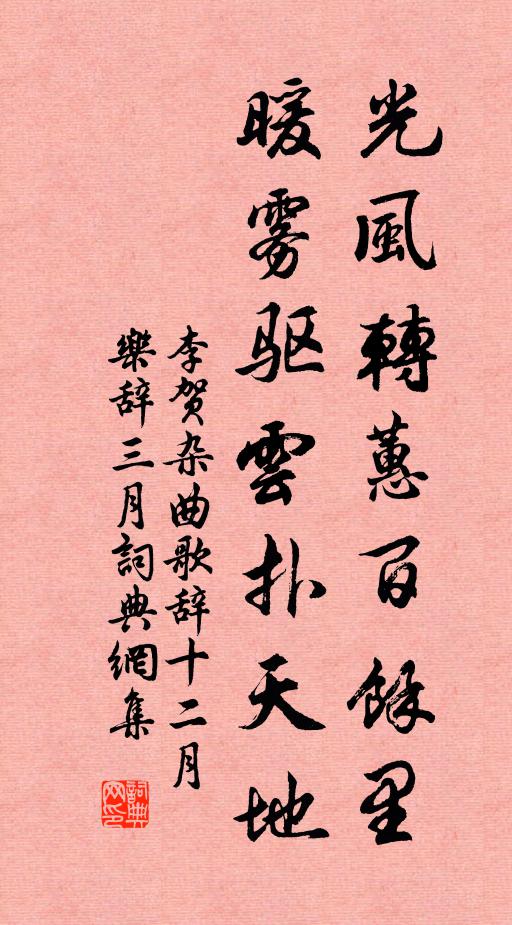 光風轉蕙百餘里
暖雾驱雲扑天地
李贺杂曲歌辞十二月
樂辞三月詞典網集
詞典网印